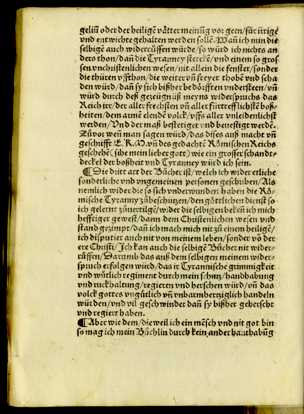 gelin̄ oder der heilige vätter meinūg vor geen/ für irrige
vnd entwichte gehalten werden solle. Wan̄ ich nun die
selbige auch widerruffen würde/ so würd ich nichts an
ders thon/ dan̄ die Tyranney sterckē/ vnd einem so gros
sen vnchristenlichen wesen/ nit allein die fenster/ sonder
die thüren vffthon/ die weiter vn̄ freyer thobē vnd scha
den würd/ dan̄ sy sich bißher bedörfften vndersteen/ vn̄
würd durch deß gezeügnüß meyns widerspuchs das
Reich irer/ der aller frechsten vn̄ aller sürtrefflichstē boß
heiten/ dem armē elendē volck/ vffs aller vnleidenlichst
werden/ Vnd der maß bestetiget vnd beuestiget werdē.
Züvor wen̄ man sagen würd/ das dises auß macht vn̄
geschefft E.K.M. vn̄ des gedachtē Römischen Reichs
geschehē/ sihe mein lieber gott/ wie ein grosser schande
deckel der boßheit vnd Tyranney würd ich sein.
¶ Die dritt art der Bücher ist/ welch ich wider etliche
sonderliche vnd eygenneinen personen geschriben/ Als
nemlich wider die so sich vnderwunden haben die Rö-
mische Tyranny zübeschützen/ den götlichen dienst so
ich gelernt züuertilgē/ wider die selbigen beken ich mich
hefftiger gewest/ dann dem Christenlichen wesen vnd
stand gezimpt/ dan̄ ich mach mich nit zū einem heilige/
ich disputier auch nit von meinem leben/ sonder vō der
ere Christi/ Ich kan auch die selbige Bücher nit wider-
rüffen/ Darumb das auß dem selbigem meinem wider-
spruch erfolgen wird/ das ir Tyrannische grimmigkeit
vnd wütlich regiment durch mein schutz/ handhabung
vnd ruckhaltung/ regieren vnd herschen würd/ vn̄ das
volck gottes vngütlich vn̄ vnbarmhertziglich handeln
würdē/ vnd vil gesch winder dan̄ sy bißher geherscht
vnd regiert haben.
¶ Aber wie dem/ die weil ich ein mēsch vnd nit got bin
so mag ich mein Büchlin durch kein ander hanthabūg